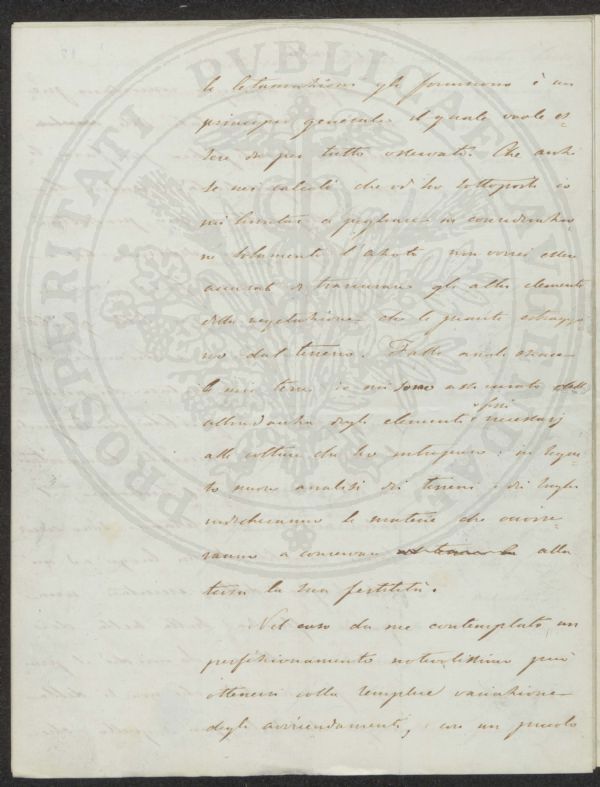 le letamazioni gli forniscono è un
principio generale il quale vuole es-
sere da per tutto osservato. Che anzi
se nei calcoli che vi ho sottoposti io
mi limitai a pigliare in considerazio-
ne solamente l'azoto non vorrei esser
accusato di trascurare gli altri elementi
della vegetazione che le piante estraggo
no dal terreno. Fatte analizzare
le mie terre io mi sono assicurato della
abbondanza degli elementi fissi necessarj
alle colture che ho intrapreso: in segui-
to nuove analisi dei terreni e dei
indicheranno le materie che occorre-
ranno a conservare alla
terra la sua fertilità.
Nel caso da me contemplato un
perfezionamento notevolissimo può
ottenersi colla semplice variazione
degli avvicendamenti, con un piccolo
PROSPERITATI PVBLICAE AVGENDAE